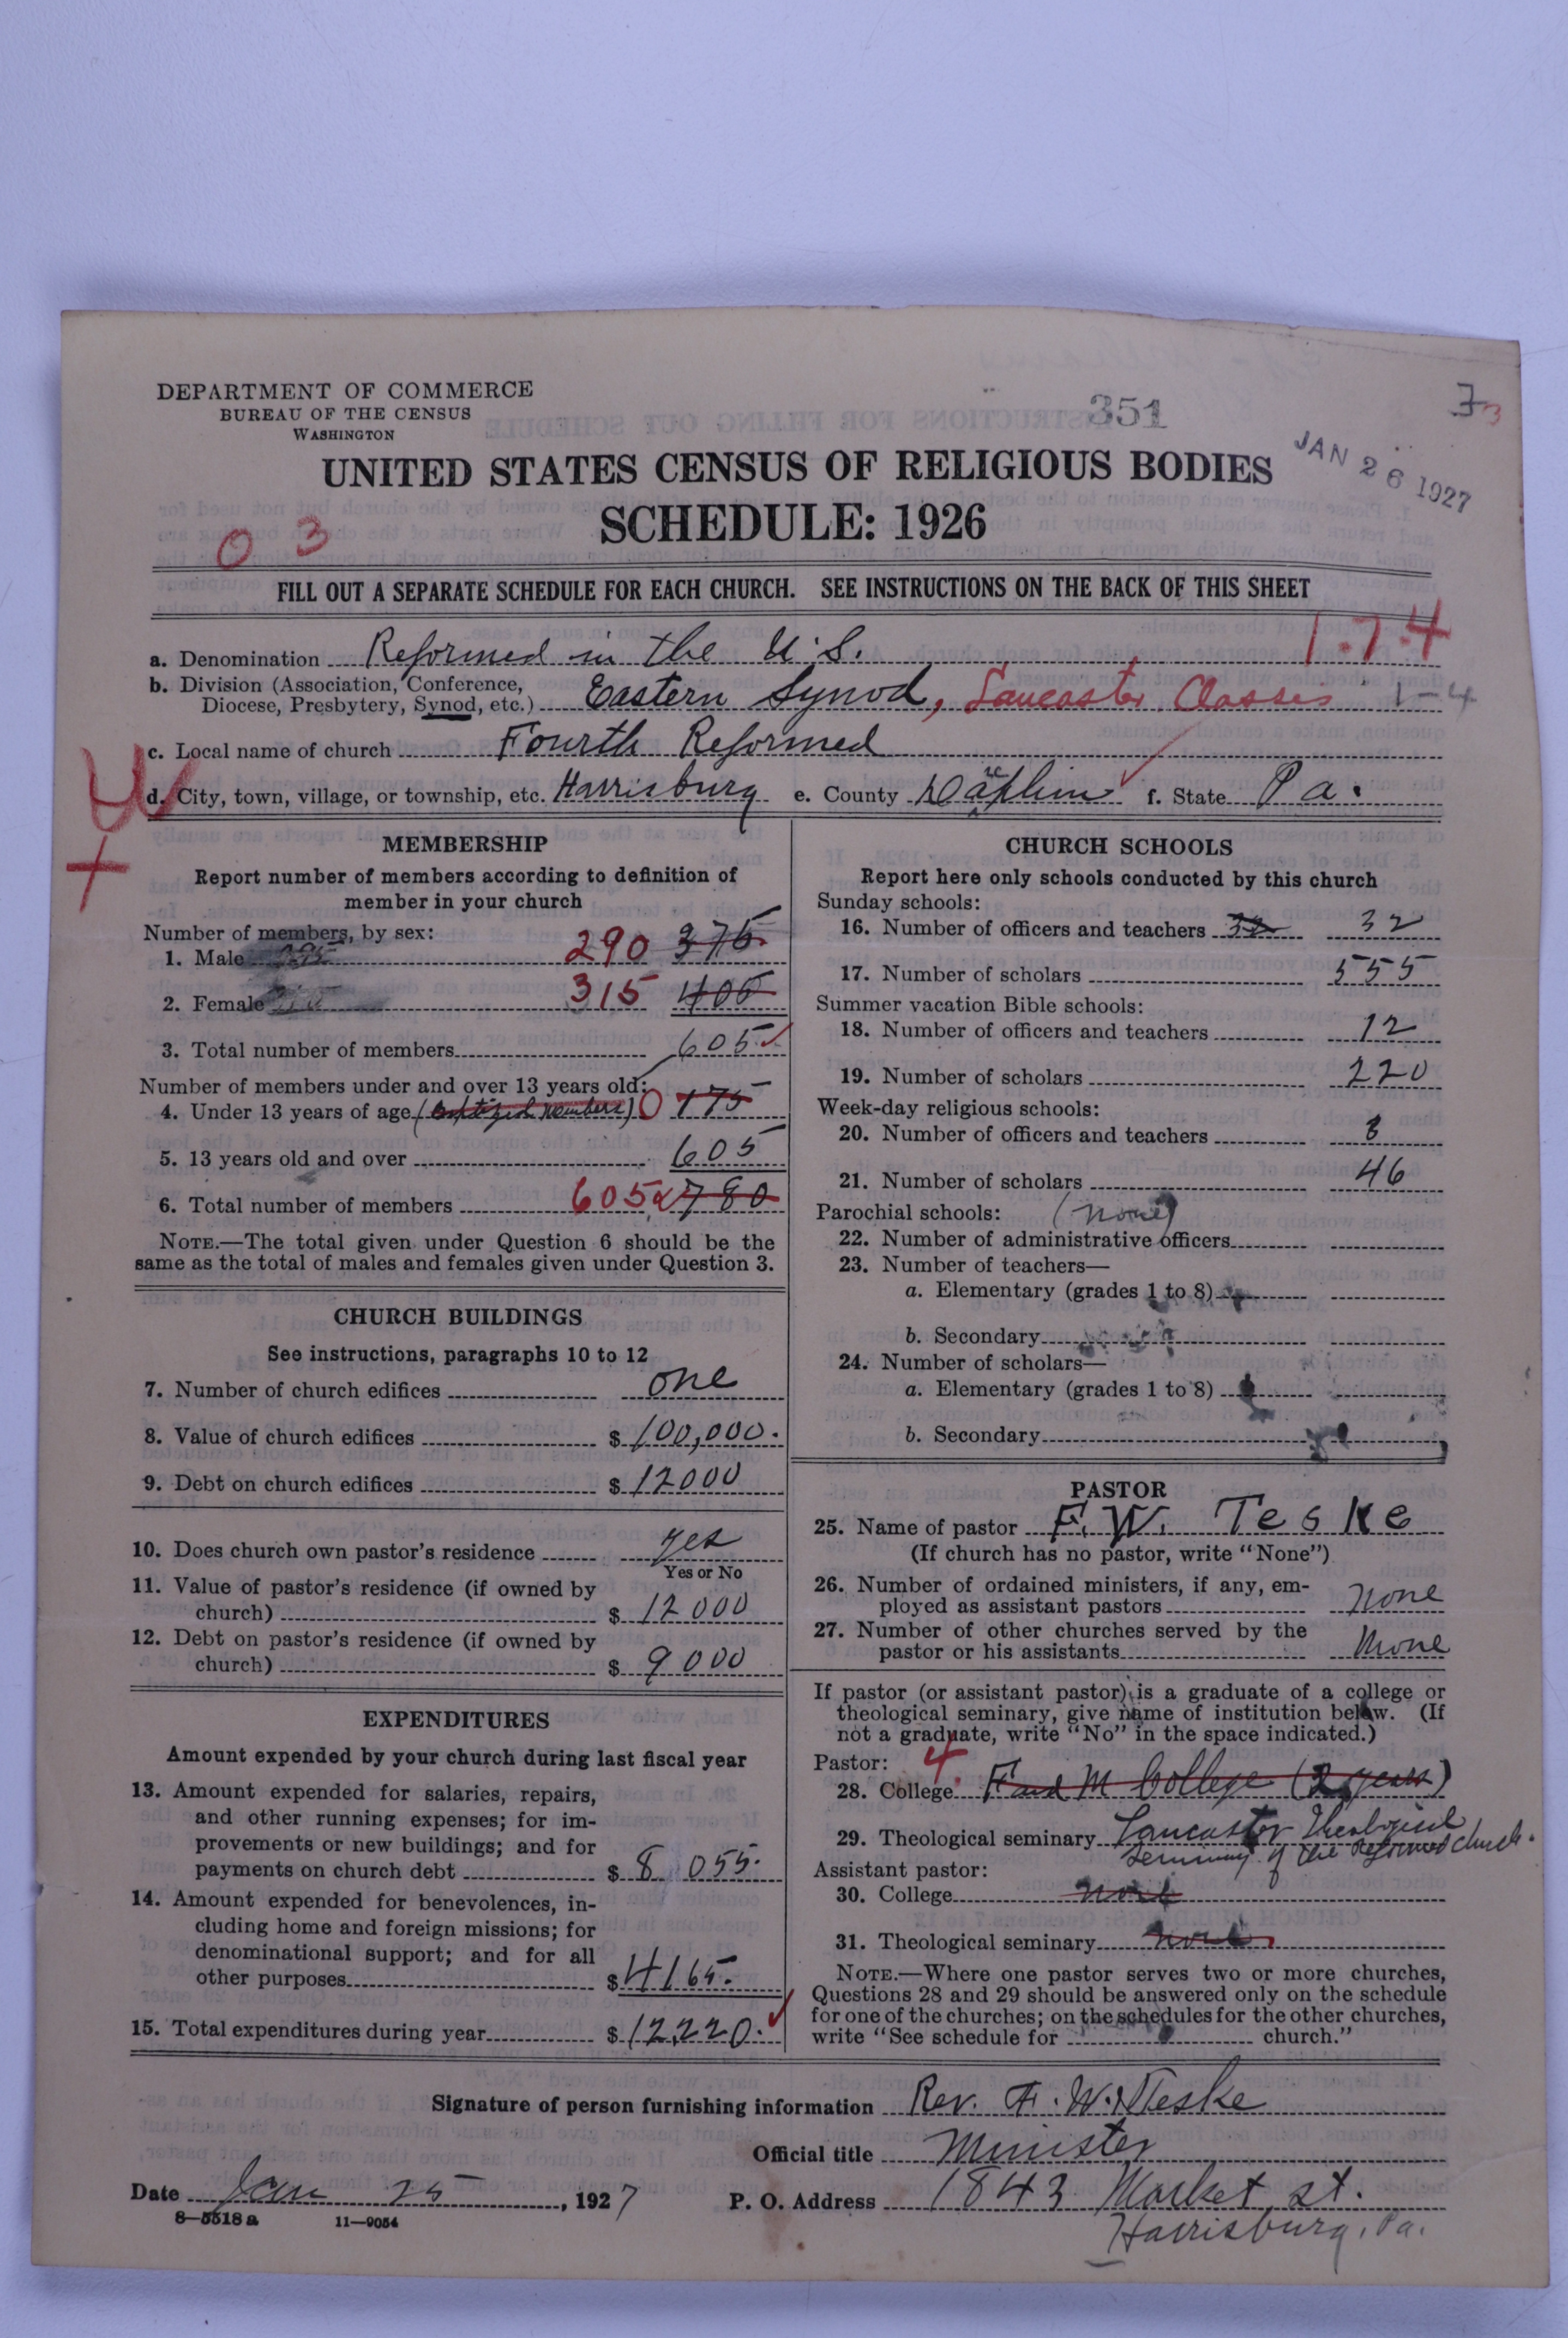 DEPARTMENT OF COMMERCE
BUREAU OF THE CENSUS
WASHINGTON
351
73
JAN 26 1927
UNITED STATES CENSUS OF RELIGIOUS BODIES
SCHEDULE: 1926
0 3
FILL OUT A SEPARATE SCHEDULE FOR EACH CHURCH. SEE INSTRUCTIONS ON THE BACK OF THIS SHEET
1-7-4
a. Denomination Reformed in the U.S.
b. Division (Association, Conference,
Diocese, Presbytery, Synod, etc.) Eastern Synod, Lancaster Classis 1-4
c. Local name of church Fourth Reformed
d. City, town, village, or township, etc. Harrisburg e. County Dauphin f. State Pa.
MEMBERSHIP
Report number of members according to definition of
member in your church
Number of members, by sex:
1. Male 290 375
2. Female 315 405
3. Total number of members 605
Number of members under and over 13 years old:
4. Under 13 years of age (baptized members) 0 175
5. 13 years old and over 605
6. Total number of members 605 780
NOTE.—The total given under Question 6 should be the
same as the total of males and females given under Question 3.
CHURCH BUILDINGS
See instructions, paragraphs 10 to 12
7. Number of church edifices one
8. Value of church edifices $ 100,000.
9. Debt on church edifices $ 12000
10. Does church own pastor's residence yes
Yes or No
11. Value of pastor's residence (if owned by
church) $ 12000
12. Debt on pastor's residence (if owned by
church) $ 9000
EXPENDITURES
Amount expended by your church during last fiscal year
13. Amount expended for salaries, repairs,
and other running expenses; for im-
provements or new buildings; and for
payments on church debt $ 8 055.
14. Amount expended for benevolences, in-
cluding home and foreign missions; for
denominational support; and for all
other purposes $ 4165.
15. Total expenditures during year $ 12,220.
CHURCH SCHOOLS
Report here only schools conducted by this church
Sunday schools:
16. Number of officers and teachers 32 32
17. Number of scholars 555
Summer vacation Bible schools:
18. Number of officers and teachers 12
19. Number of scholars 220
Week-day religious schools:
20. Number of officers and teachers 3
21. Number of scholars 46
Parochial schools: (none)
22. Number of administrative officers
23. Number of teachers—
a. Elementary (grades 1 to 8)
b. Secondary
24. Number of scholars—
a. Elementary (grades 1 to 8)
b. Secondary
PASTOR
25. Name of pastor F. W. Teske
(If church has no pastor, write "None")
26. Number of ordained ministers, if any, em-
ployed as assistant pastors none
27. Number of other churches served by the
pastor or his assistants None
If pastor (or assistant pastor) is a graduate of a college or
theological seminary, give name of institution below. (If
not a graduate, write "No" in the space indicated.)
Pastor: 4
28. College F and M College (2 years)
29. Theological seminary Lancaster Theological
Seminary of the Reformed Church.
Assistant pastor:
30. College none
31. Theological seminary none
NOTE.—Where one pastor serves two or more churches,
Questions 28 and 29 should be answered only on the schedule
for one of the churches; on the schedules for the other churches,
write "See schedule for church."
Signature of person furnishing information Rev. F. W. Teske
Official title Minister
Date Jan 25, 1927 P. O. Address 1843 Market St.
Harrisburg, Pa.
8—5518 a 11—9054